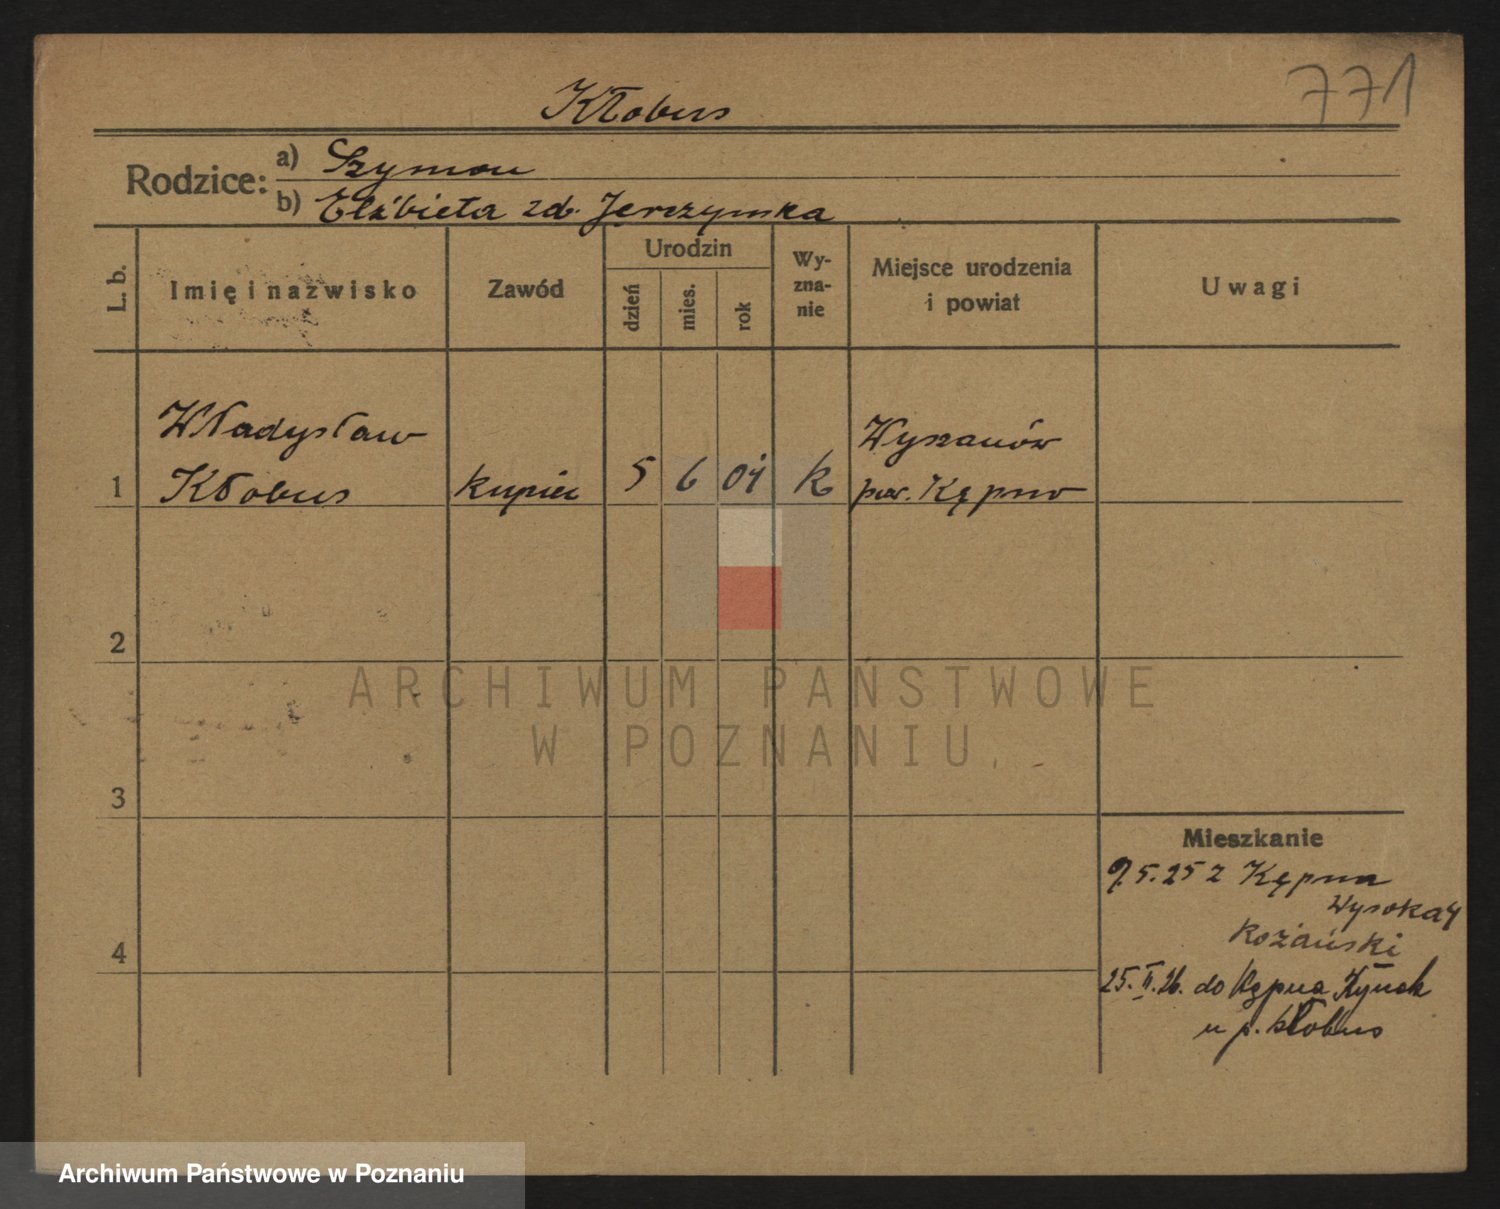 771
Kłobus
Rodzice:
a) Szymon
b) Elżbieta zd. Jerczyńska
L. b.
Imię i nazwisko
Zawód
Urodzin
dzień
mies.
rok
Wy-
zna-
nie
Miejsce urodzenia
i powiat
Uwagi
Władysław
Wyszanów
1 Kłobus kupiec 5 6 04 k pow. Kępno
2
3
4
Mieszkanie
9.5.25 z Kępna
Wysoka 4
25. II. 26. do Kępna Rynek
u p. Kłobus
ARCHIWUM PAŃSTWOWE
W POZNANIU
Archiwum Państwowe w Poznaniu